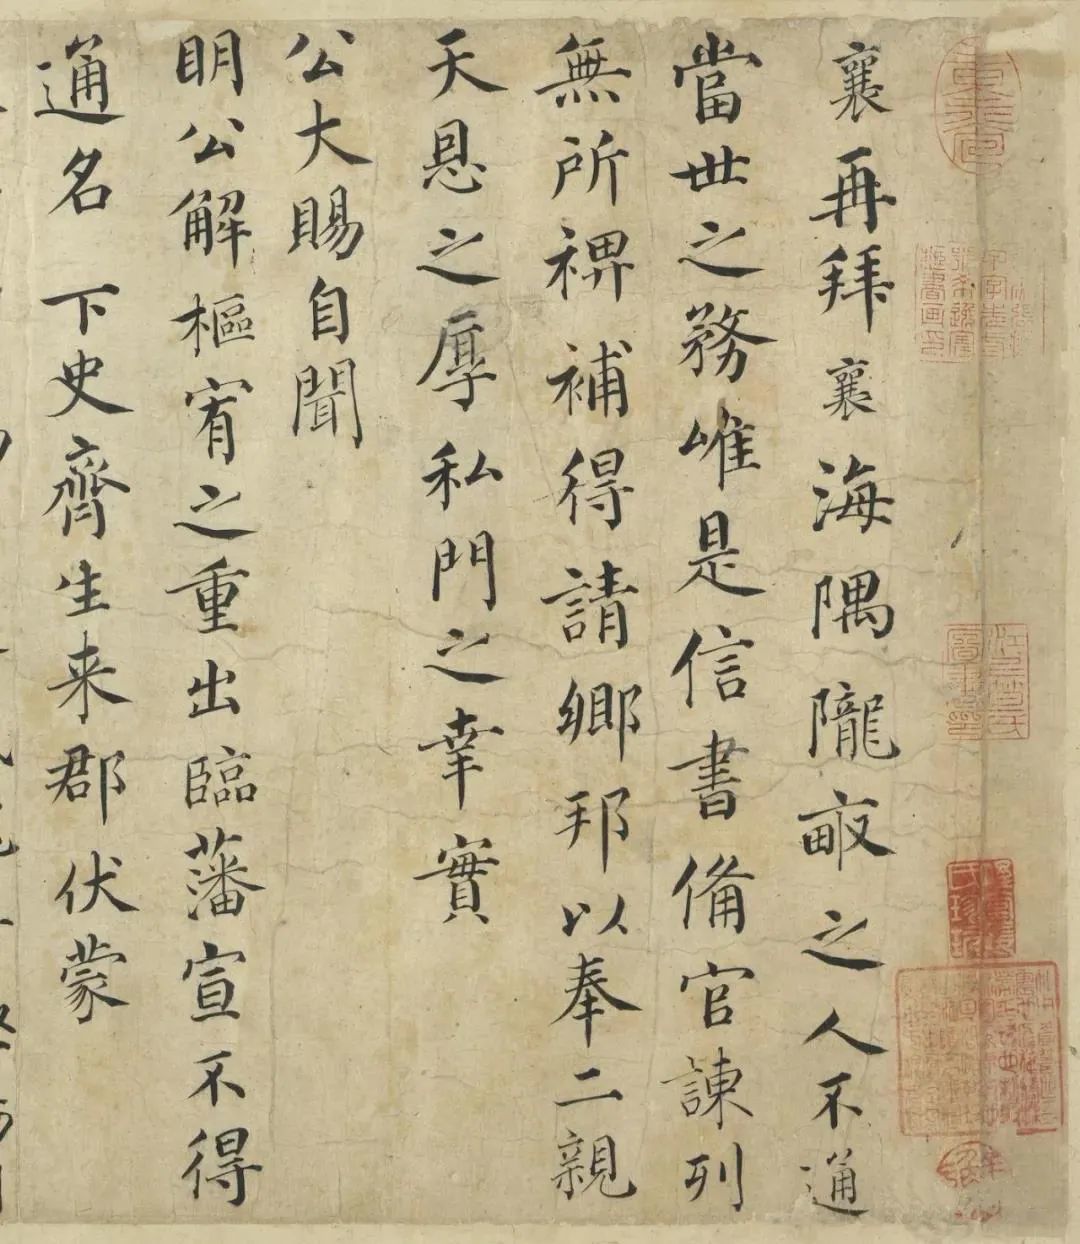 襄再拜襄海隅隴畝之人不通
當世之務唯是信書備官諫列
無所裨補得請鄉邦以奉二親
天恩之厚私門之幸實
公大賜自聞
明公解樞宥之重出臨藩宣不得
通名下史齊生來郡伏蒙